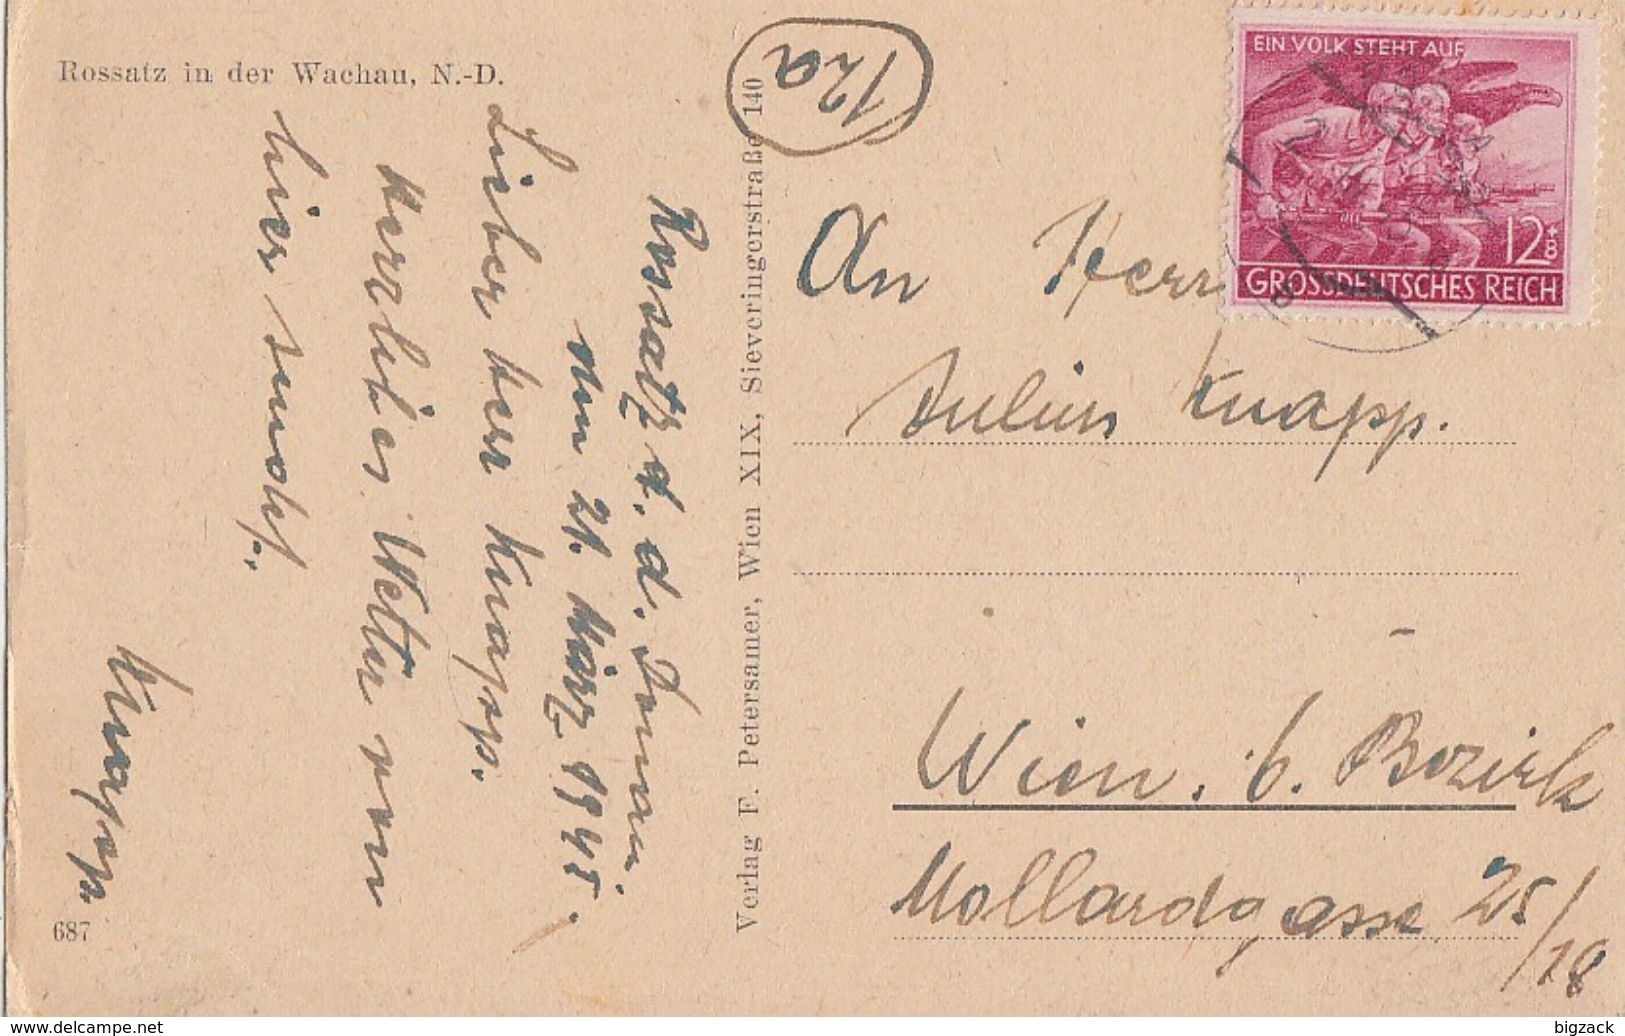 Rossatz in der Wachau, N.-D.
12a
EIN VOLK STEHT AUF
12+8
GROSSDEUTSCHES REICH
Rossatz a. d. Donau.
den 21. März 1945.
Lieber Herr Knapp.
Herrliches Wetter von
hier sendet.
Knapp
Verlag F. Petersamer, Wien XIX, Sieveringerstraße 140
An Herr
Julius Knapp.
Wien. 6. Bezirk
Mollardgasse 25/18
687
http://www.delcampe.net
bigzack